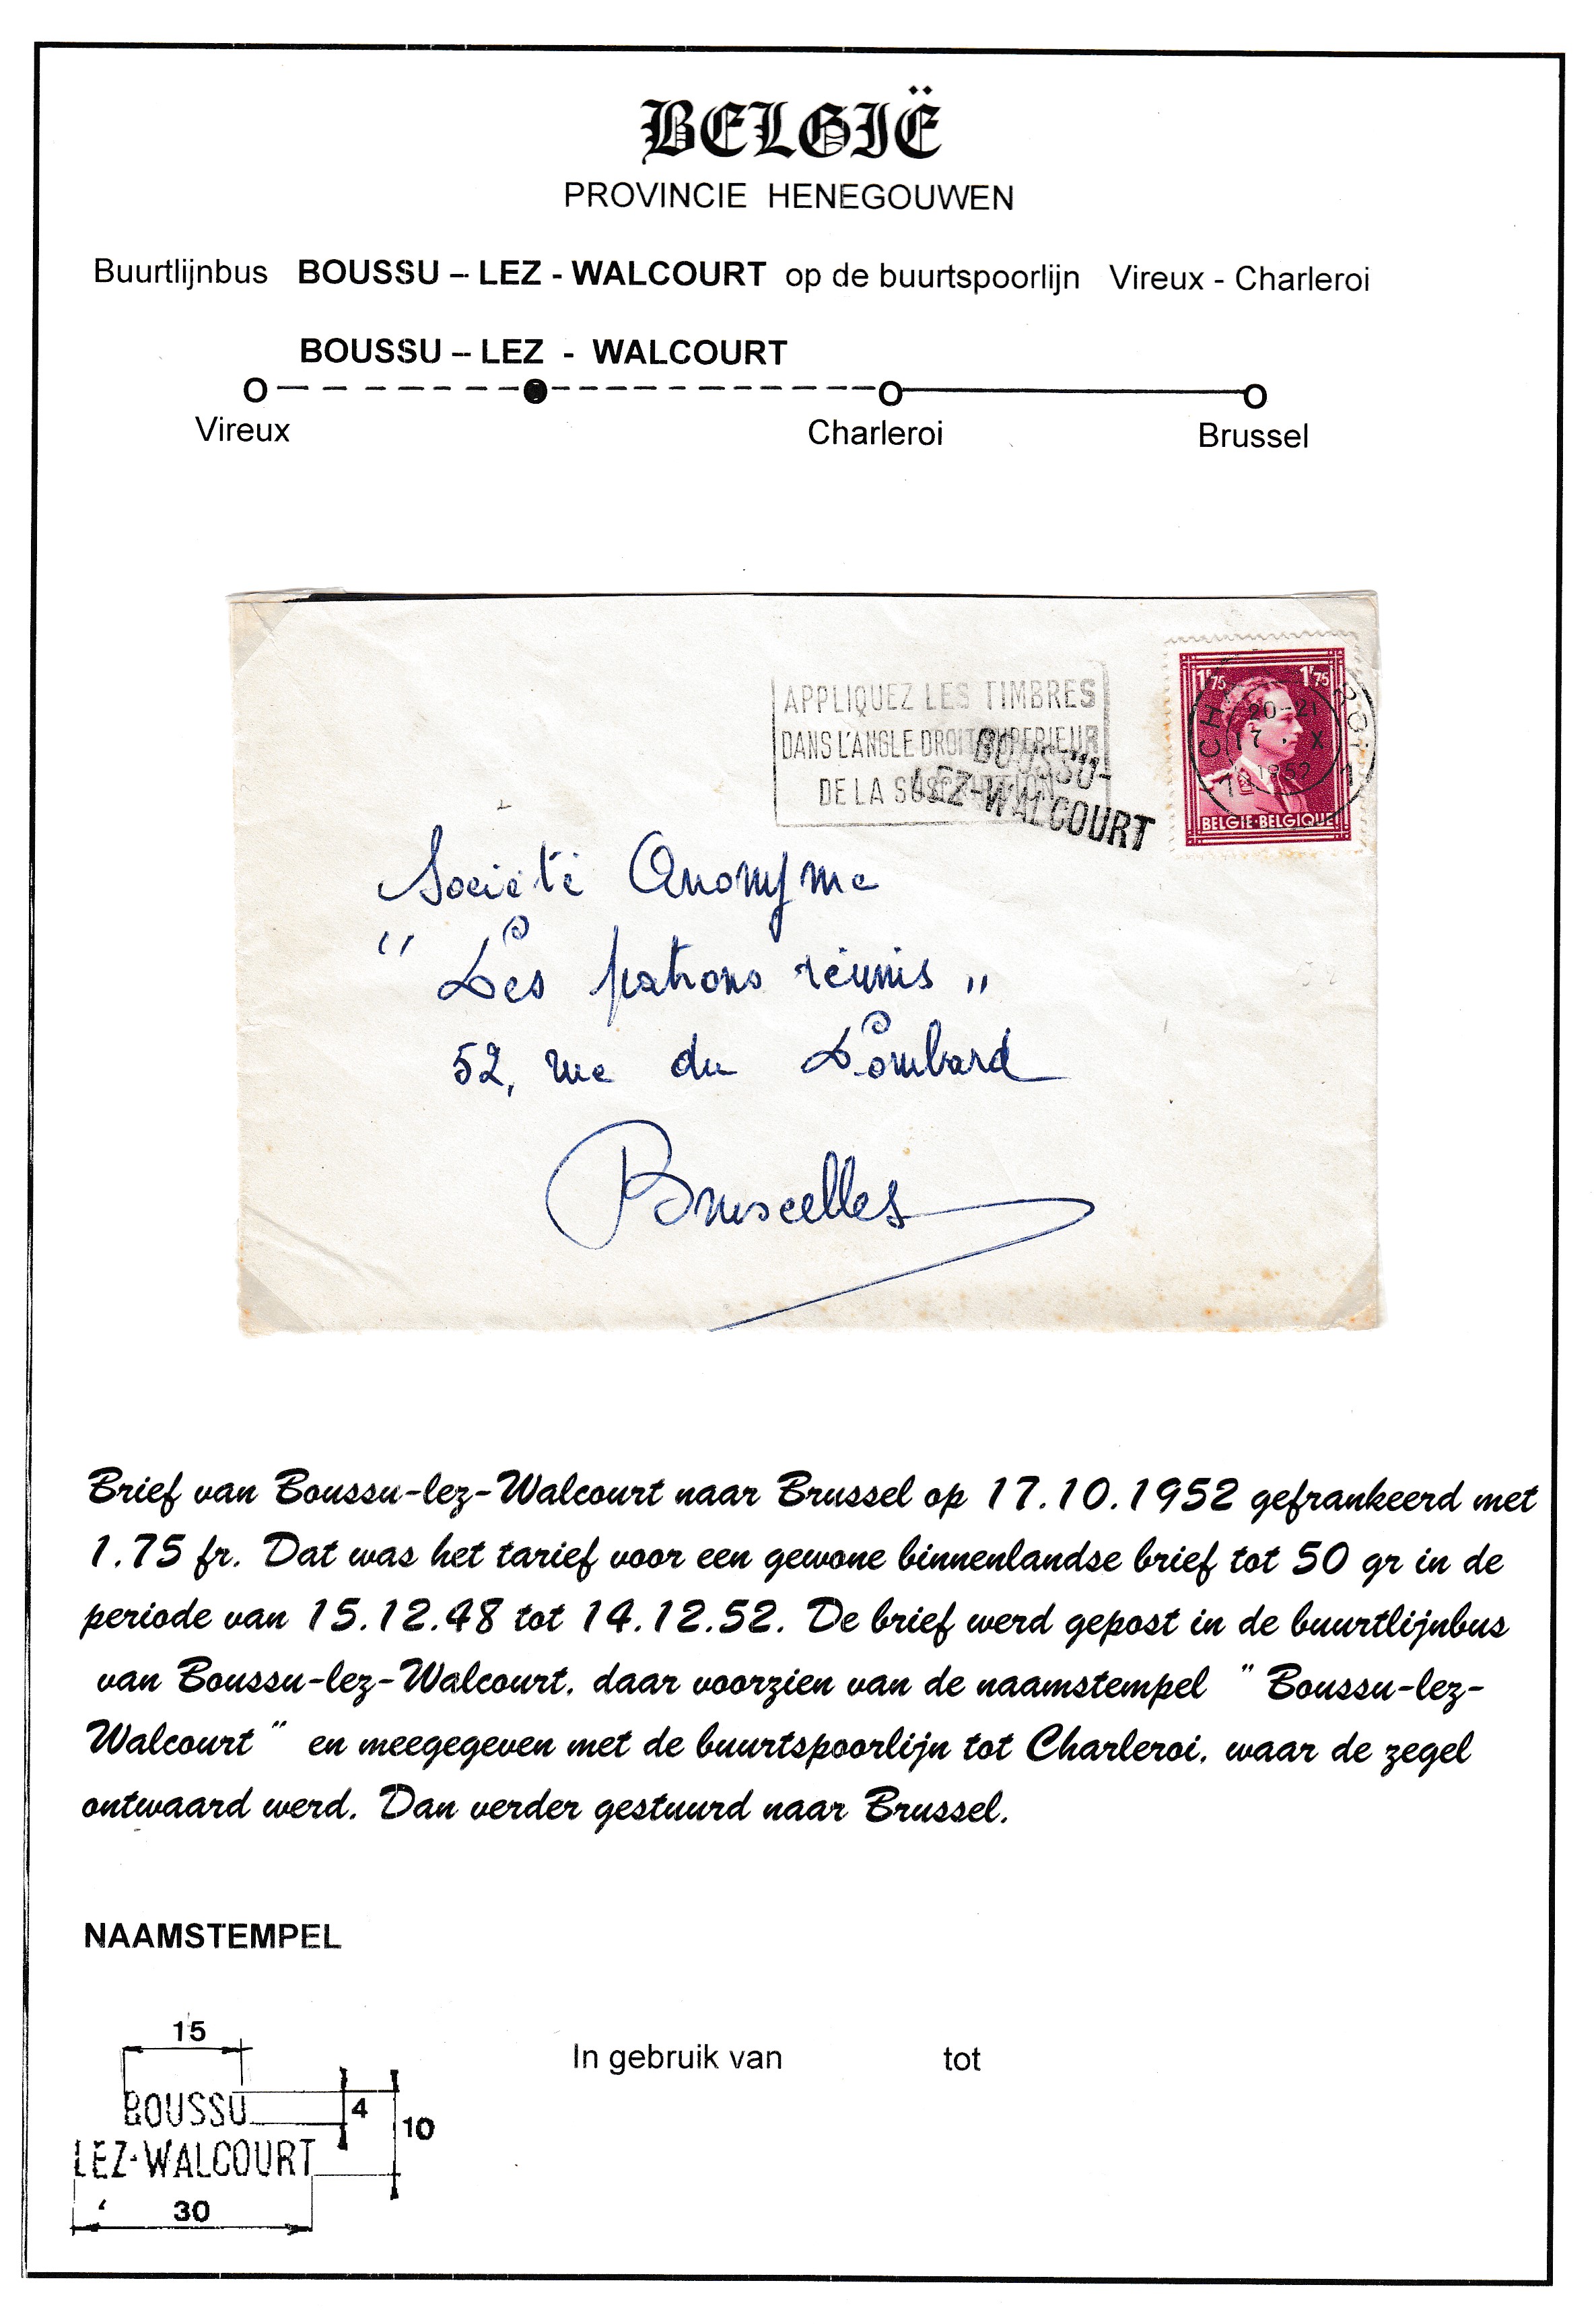 BELGIË
PROVINCIE HENEGOUWEN
Buurtlijnbus BOUSSU – LEZ - WALCOURT op de buurtspoorlijn Vireux - Charleroi
BOUSSU – LEZ - WALCOURT
Vireux Charleroi Brussel
APPLIQUEZ LES TIMBRES
DANS L'ANGLE DROIT SUPERIEUR
DE LA
BOUSSU-
LEZ-WALCOURT
1F75 1F75
20-21
17 . X
1952
1 1
BELGIE-BELGIQUE
Société Anonyme
" Les patrons réunis "
52, rue du Lombard
Bruxelles
Brief van Boussu-lez-Walcourt naar Brussel op 17.10.1952 gefrankeerd met
1.75 fr. Dat was het tarief voor een gewone binnenlandse brief tot 50 gr in de
periode van 15.12.48 tot 14.12.52. De brief werd gepost in de buurtlijnbus
van Boussu-lez-Walcourt, daar voorzien van de naamstempel " Boussu-lez-
Walcourt " en meegegeven met de buurtspoorlijn tot Charleroi, waar de zegel
ontwaard werd. Dan verder gestuurd naar Brussel.
NAAMSTEMPEL
15
In gebruik van tot
BOUSSU
4
10
LEZ-WALCOURT
30